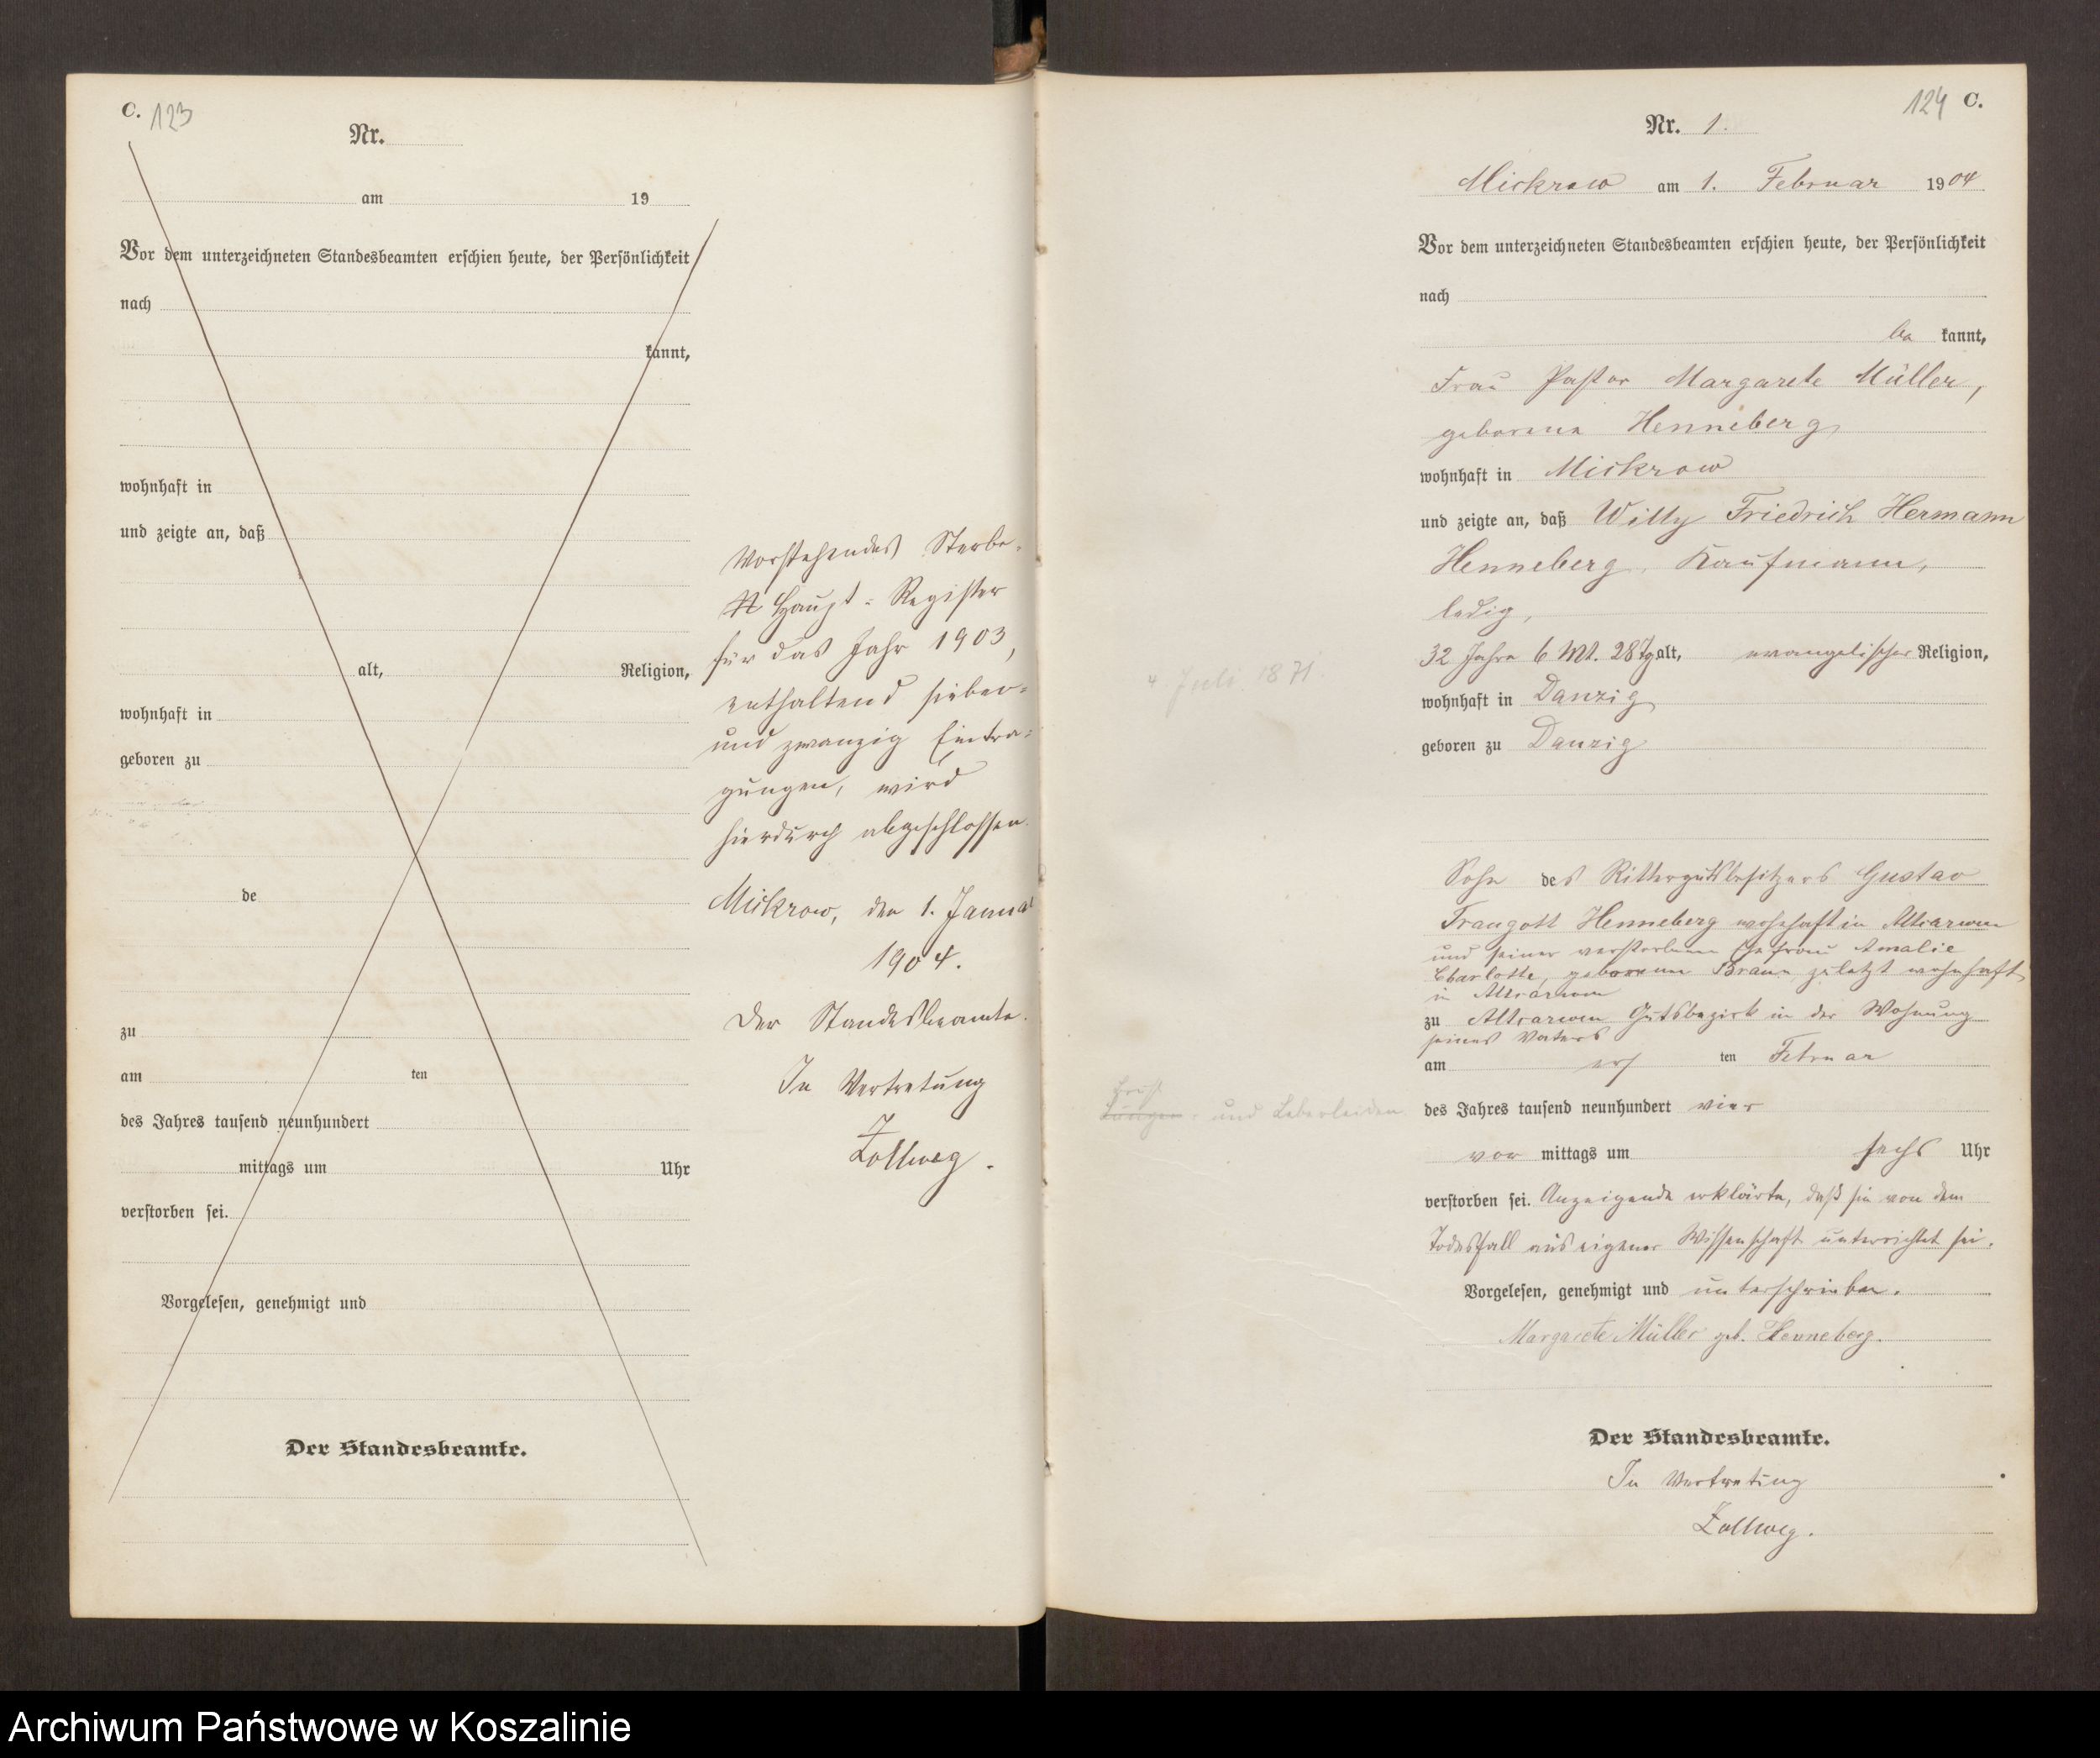 C. 123
Nr.
am 19
Vor dem unterzeichneten Standesbeamten erschien heute, der Persönlichkeit
nach
kannt,
wohnhaft in
und zeigte an, daß
alt, Religion,
wohnhaft in
geboren zu
de
zu
am ten
des Jahres tausend neunhundert
mittags um Uhr
verstorben sei.
Vorgelesen, genehmigt und
Der Standesbeamte.
Vorstehendes Sterbe-
Haupt-Register
für das Jahr 1903,
enthaltend sieben-
und zwanzig Eintra-
gungen, wird
hierdurch abgeschlossen.
Mickrow, den 1. Januar
1904.
Der Standesbeamte.
In Vertretung
Zollweg.
124 C.
Nr. 1.
Mickrow am 1. Februar 1904
Vor dem unterzeichneten Standesbeamten erschien heute, der Persönlichkeit
nach
be kannt,
Frau Pastor Margarete Müller,
geborene Henneberg
wohnhaft in Mickrow
und zeigte an, daß Willy Friedrich Hermann
Henneberg, Kaufmann,
ledig,
32 Jahre 6 Mt. 28 Tg alt, evangelischer Religion,
4 Juli 1871.
wohnhaft in Danzig
geboren zu Danzig
Sohn des Rittergutsbesitzers Gustav
Traugott Henneberg wohnhaft in
und seiner verstorbenen Ehefrau Amalie
Charlotte, geborenen Braun zuletzt wohnhaft
in
zu Gutsbezirk in der Wohnung
seines Vaters
am ers ten Februar
des Jahres tausend neunhundert vier
Lungen- und Leberleiden
vor mittags um sechs Uhr
verstorben sei. Anzeigende erklärte, daß sie von dem
Todesfall aus eigener Wissenschaft unterrichtet sei.
Vorgelesen, genehmigt und unterschrieben.
Margarete Müller geb. Henneberg.
Der Standesbeamte.
In Vertretung
Zollweg.
Archiwum Państwowe w Koszalinie